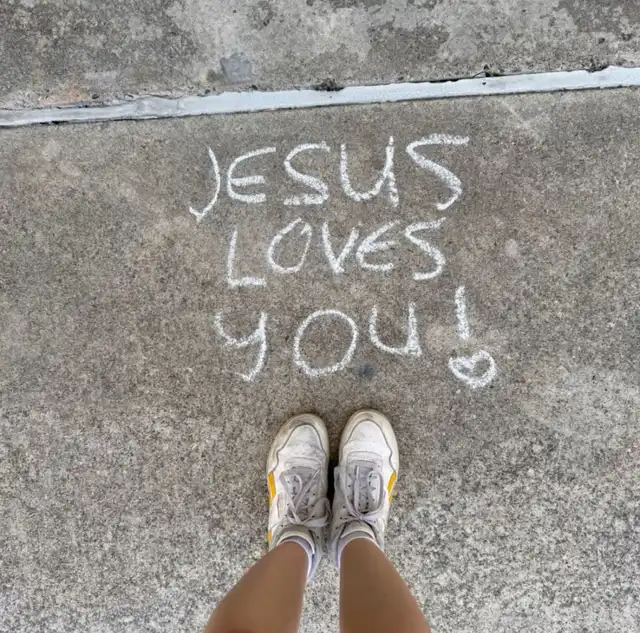 JESUS
LOVES
YOU!